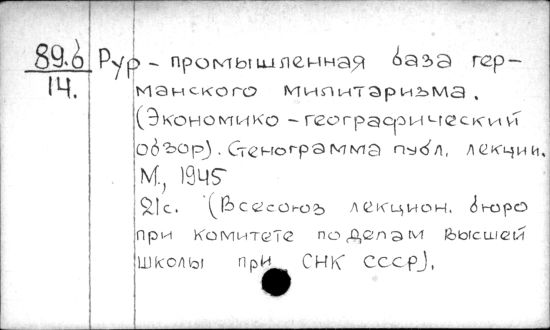 89.б Рур – промышленная база гер-
14. манского милитаризма.
(Экономико – географический
обзор). Стенограмма публ. лекции.
М., 1945
21с. (Всесоюз лекцион. бюро
при комитете по делам высшей
школы при СНК СССР).